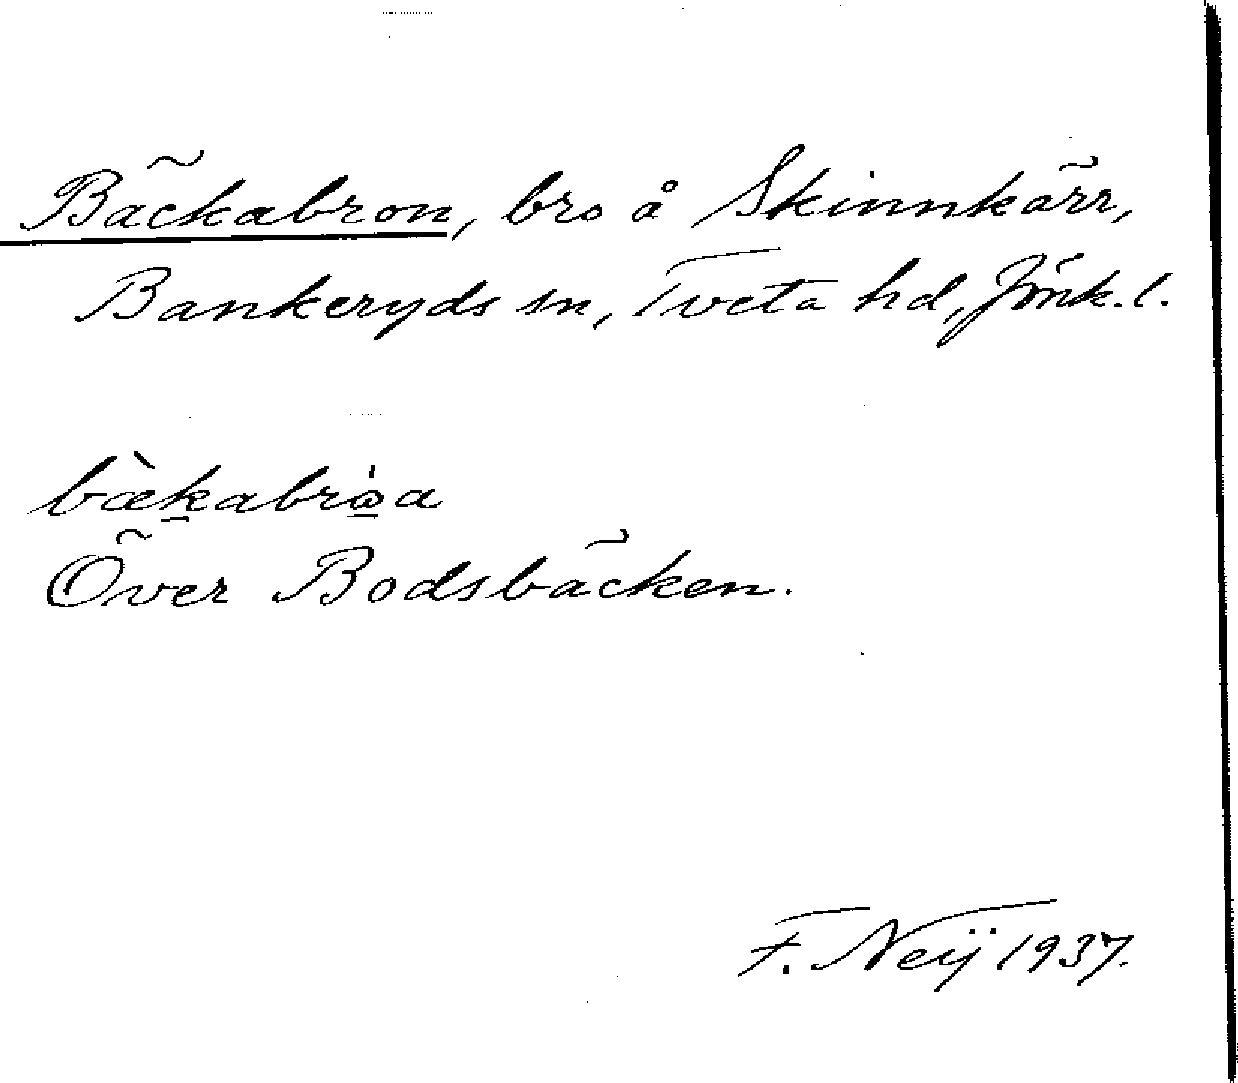 Bäckabron, bro å Skinnkärr,
Bankeryds sn, Tveta hd, Jönk. l.
Över Bodsbäcken.
F. Neij 1937.